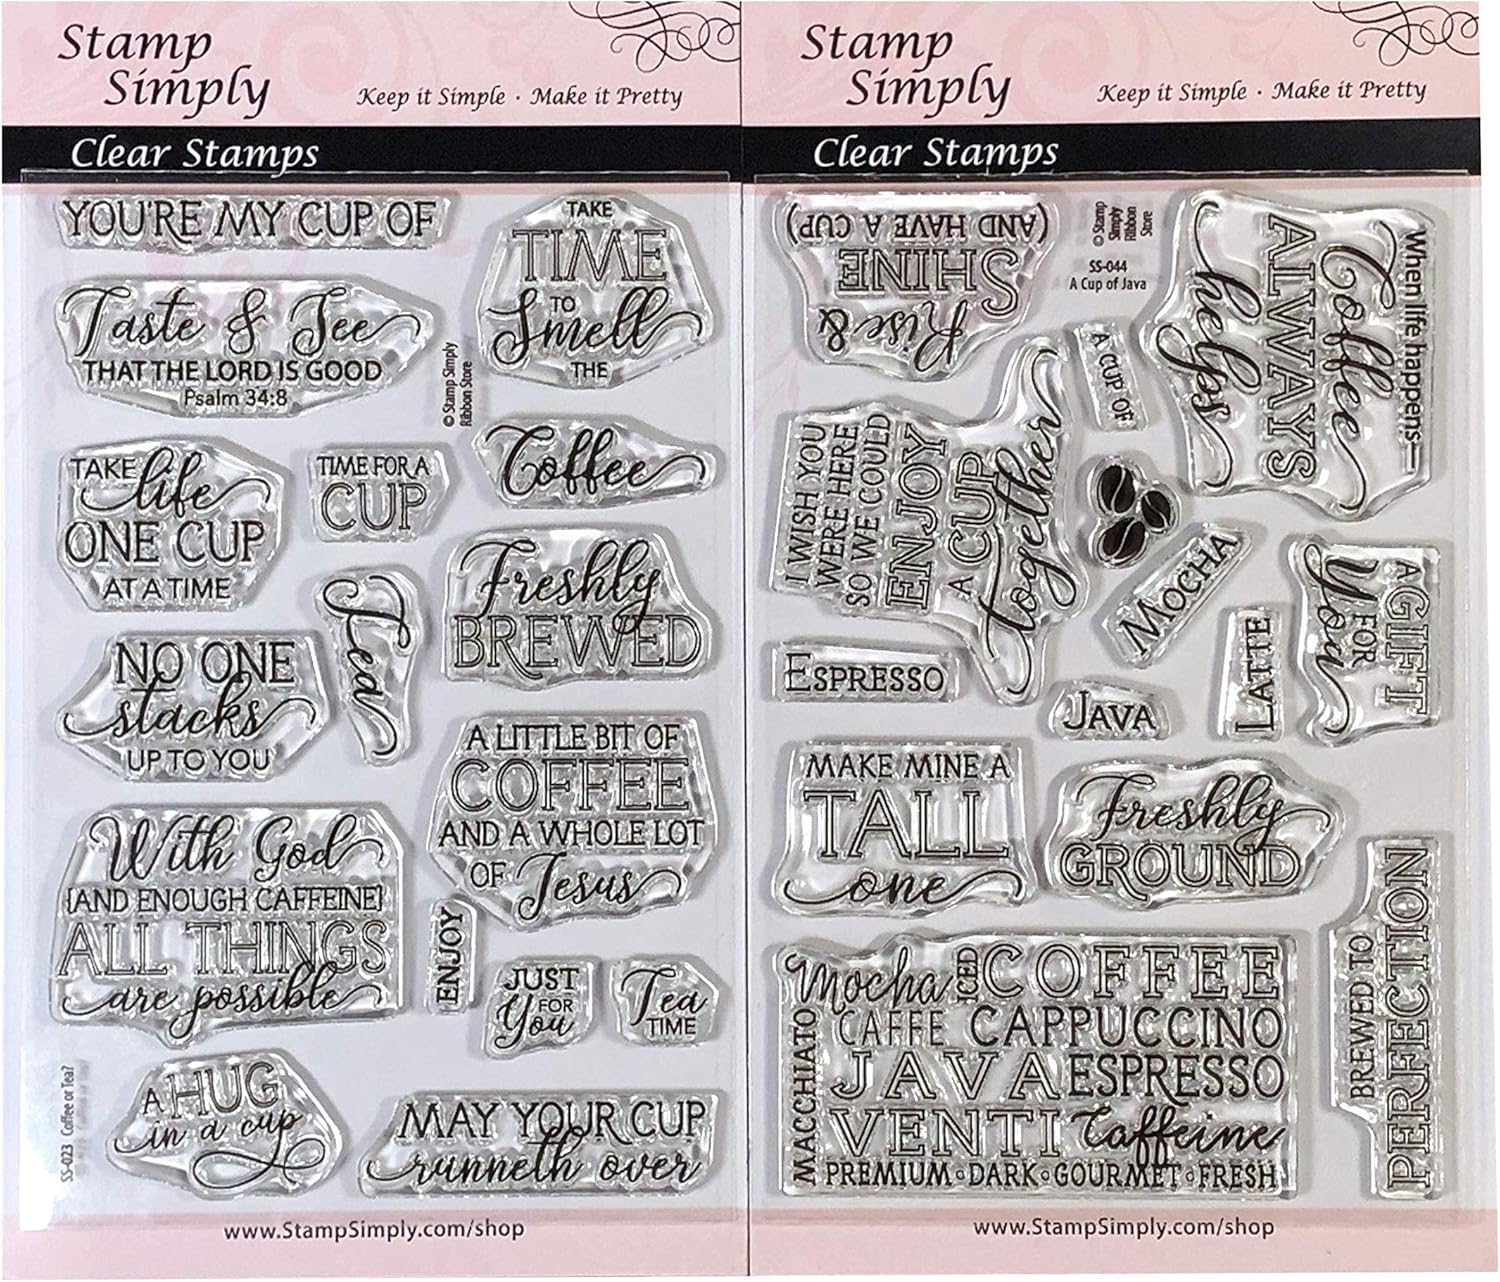 Stamp
Simply
Keep it Simple · Make it Pretty
Clear Stamps
YOU'RE MY CUP OF
TAKE
TIME
TO
Smell
THE
Taste & See
THAT THE LORD IS GOOD
Psalm 34:8
© Stamp Simply
Ribbon Store
TAKE life
ONE CUP
AT A TIME
TIME FOR A
CUP
Coffee
Freshly
BREWED
Tea
NO ONE
stacks
UP TO YOU
A LITTLE BIT OF
COFFEE
AND A WHOLE LOT
OF Jesus
With God
{AND ENOUGH CAFFEINE}
ALL THINGS
are possible
ENJOY
JUST
FOR
You
Tea
TIME
SS-023 Coffee or Tea?
A HUG
in a cup
MAY YOUR CUP
runneth over
www.StampSimply.com/shop
Stamp
Simply
Keep it Simple · Make it Pretty
Clear Stamps
Rise &
SHINE
(AND HAVE A CUP)
© Stamp
Simply
Ribbon
Store
SS-044
A Cup of Java
When life happens—
Coffee
ALWAYS
helps
A CUP OF
I WISH YOU
WERE HERE
SO WE COULD
ENJOY
A CUP
together
MOCHA
A GIFT
FOR
You
ESPRESSO
JAVA
LATTE
MAKE MINE A
TALL
one
Freshly
GROUND
BREWED TO
PERFECTION
Mocha ICED COFFEE
MACCHIATO
CAFFE CAPPUCCINO
JAVA ESPRESSO
VENTI Caffeine
PREMIUM◦DARK◦GOURMET◦FRESH
www.StampSimply.com/shop